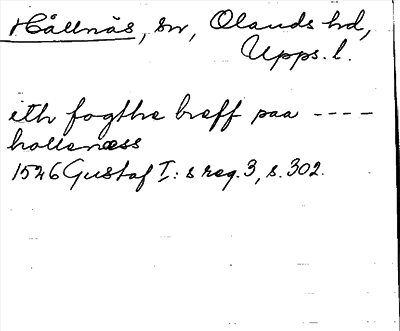 Hållnäs, sn, Olands hd,
Upps. l.
ith fogthe breff paa ----
hollenæss
1526 Gustaf I: s reg. 3, s. 302.